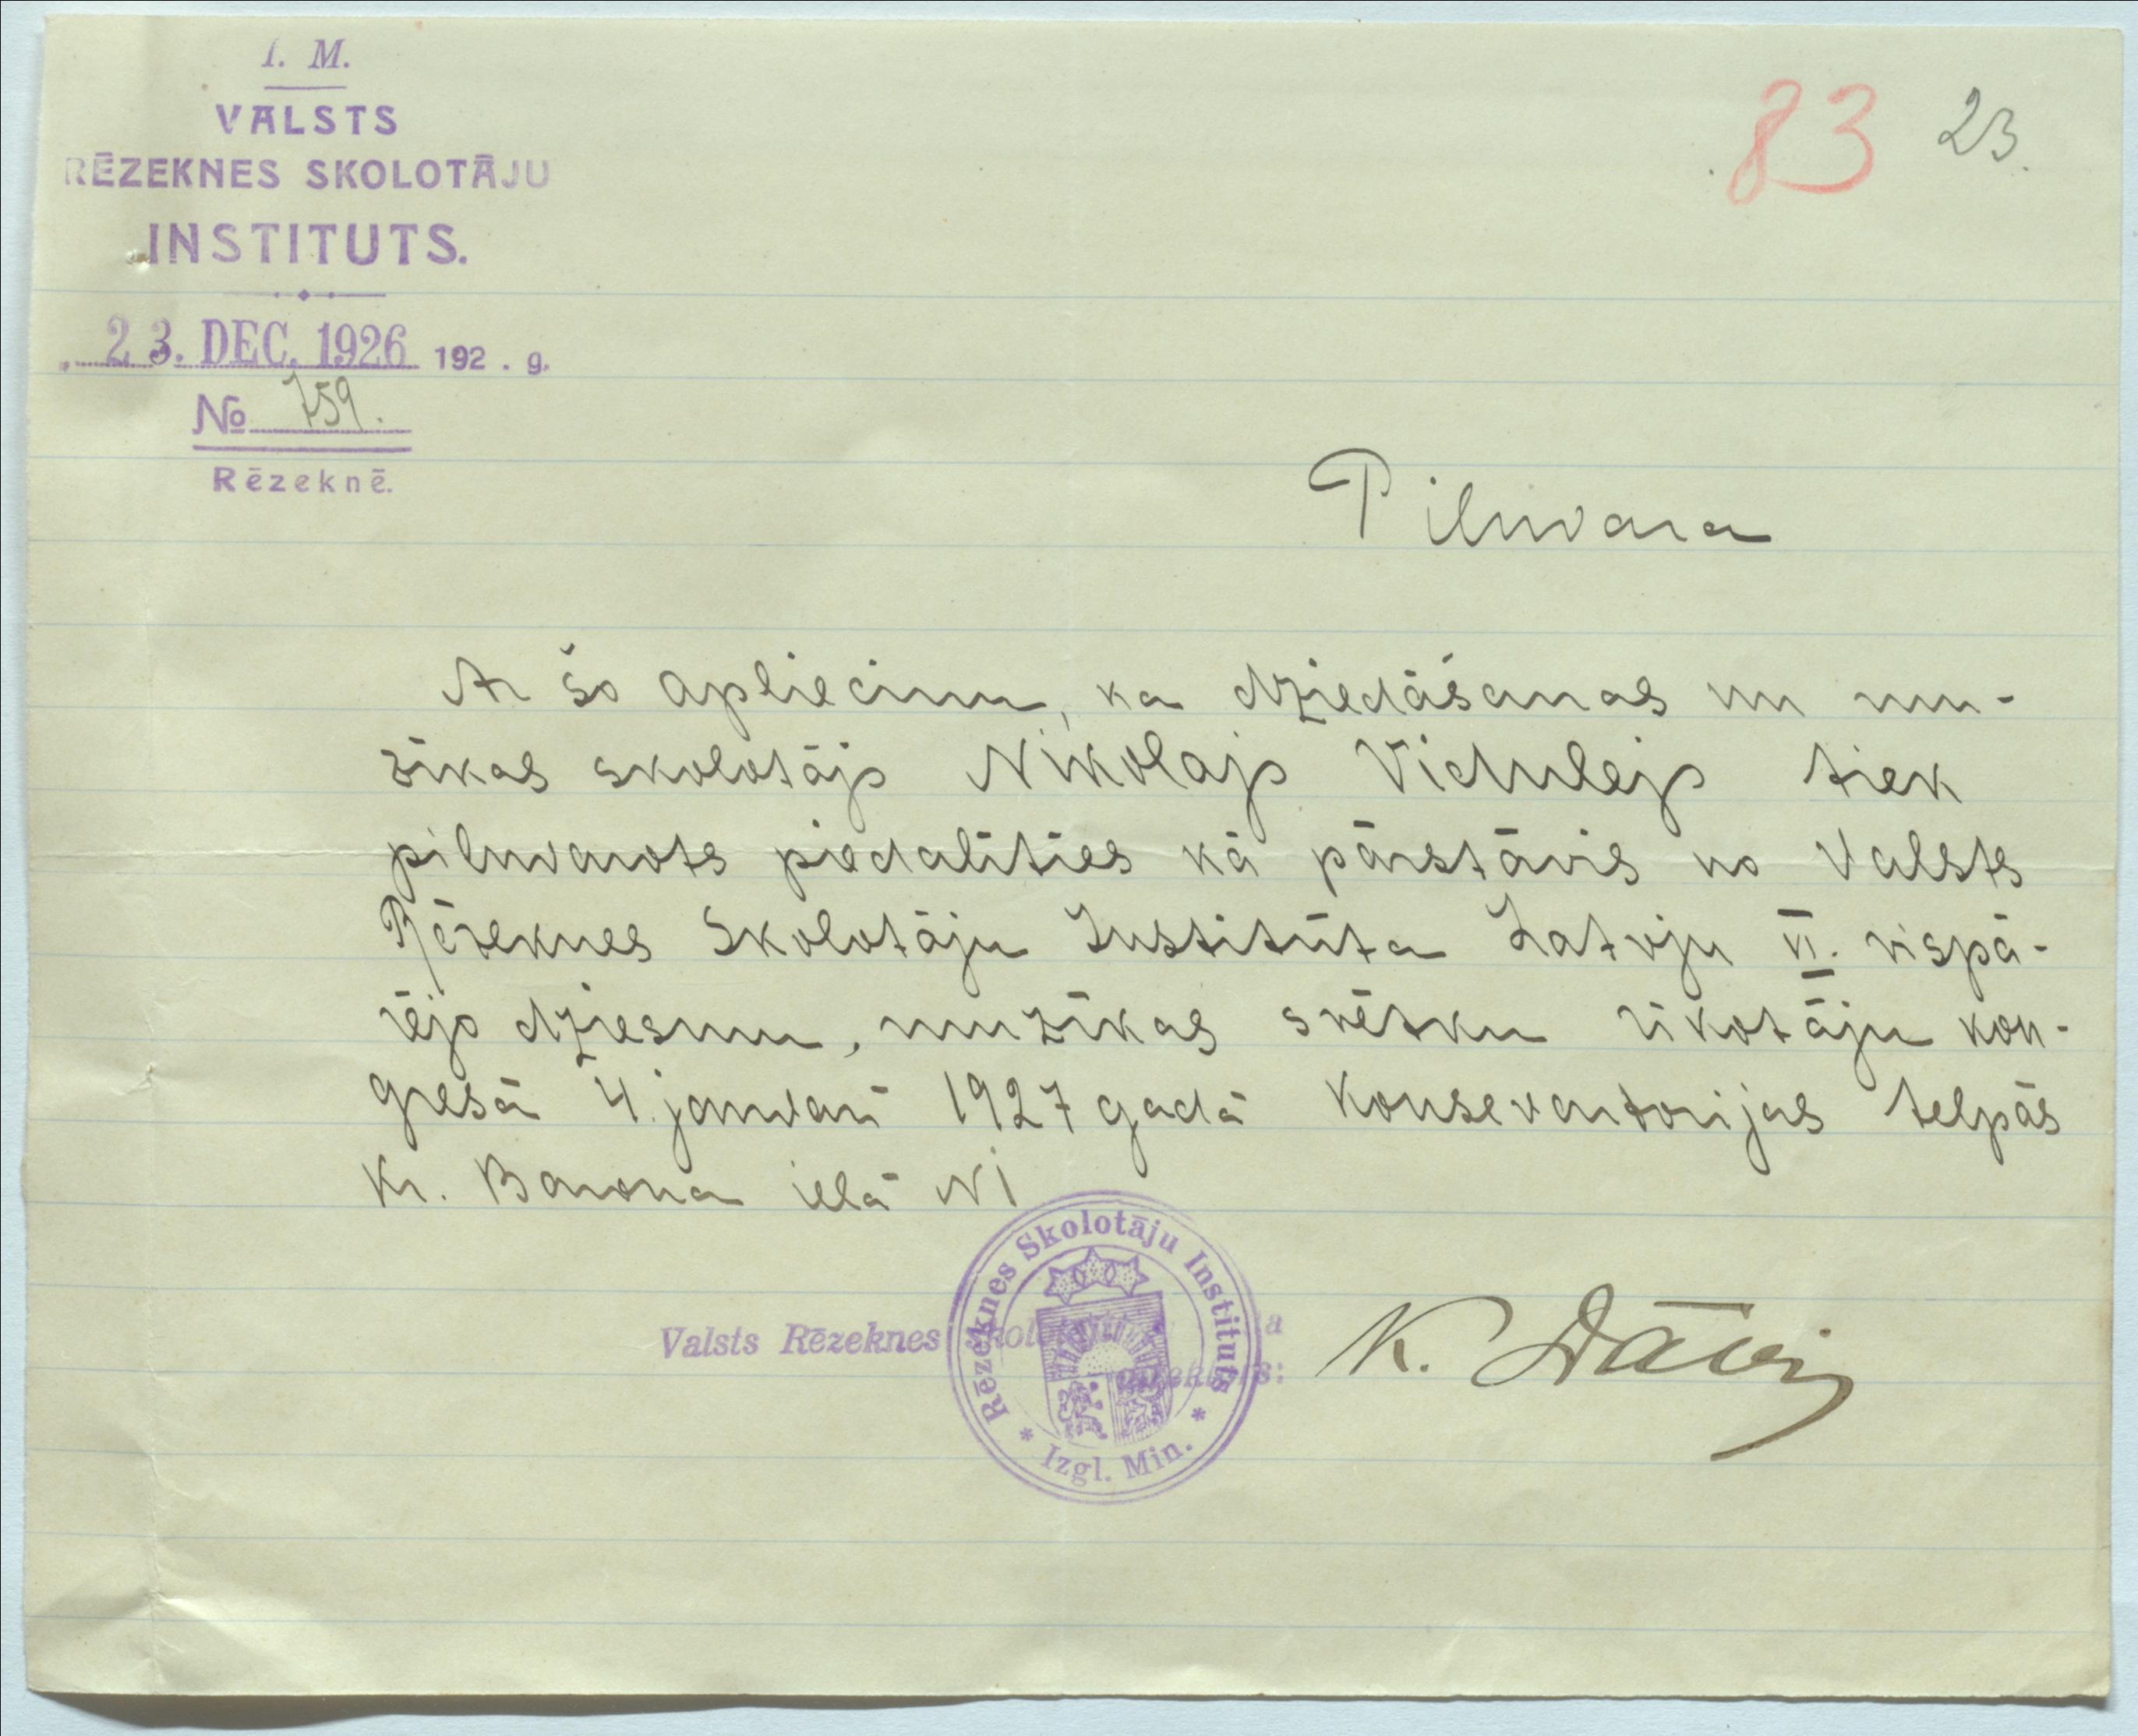 I. M.
VALSTS
RĒZEKNES SKOLOTĀJU
INSTITUTS.
23. DEC. 1926 192 . g.
№ 759.
Rēzeknē.
83 23.
Pilnvara
Ar šo apliecinu, ka dziedāšanas un mu-
zīkas skolotājs Nikolajs Vidulejs tiek
pilnvarots piedalīties kā pārstāvis no Valsts
Rēzeknes Skolotāju Institūta Latvju VI. vispā-
rējo dziesmu, muzīkas svētku rīkotāju kon-
gresā 4. janvarī 1927 gadā Konsevantorijas telpās
Kr. Barona ielā N1
Rēzeknes Skolotāju Instituts
* Izgl. Min. *
Valsts Rēzeknes
K.